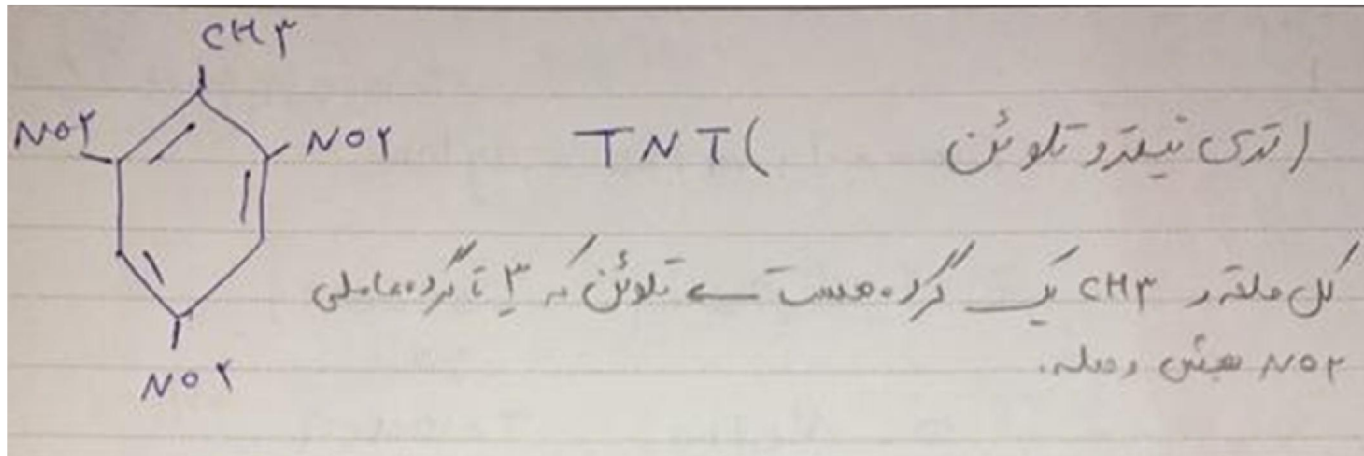 CH۳
NO۲
NO۲
TNT (تری نیترو تلوئن)
کل حلقه و CH۳ یک گروه هست ← تلوئن که ۳ تا گروه عاملی
NO۲ بهش وصله.
NO۲